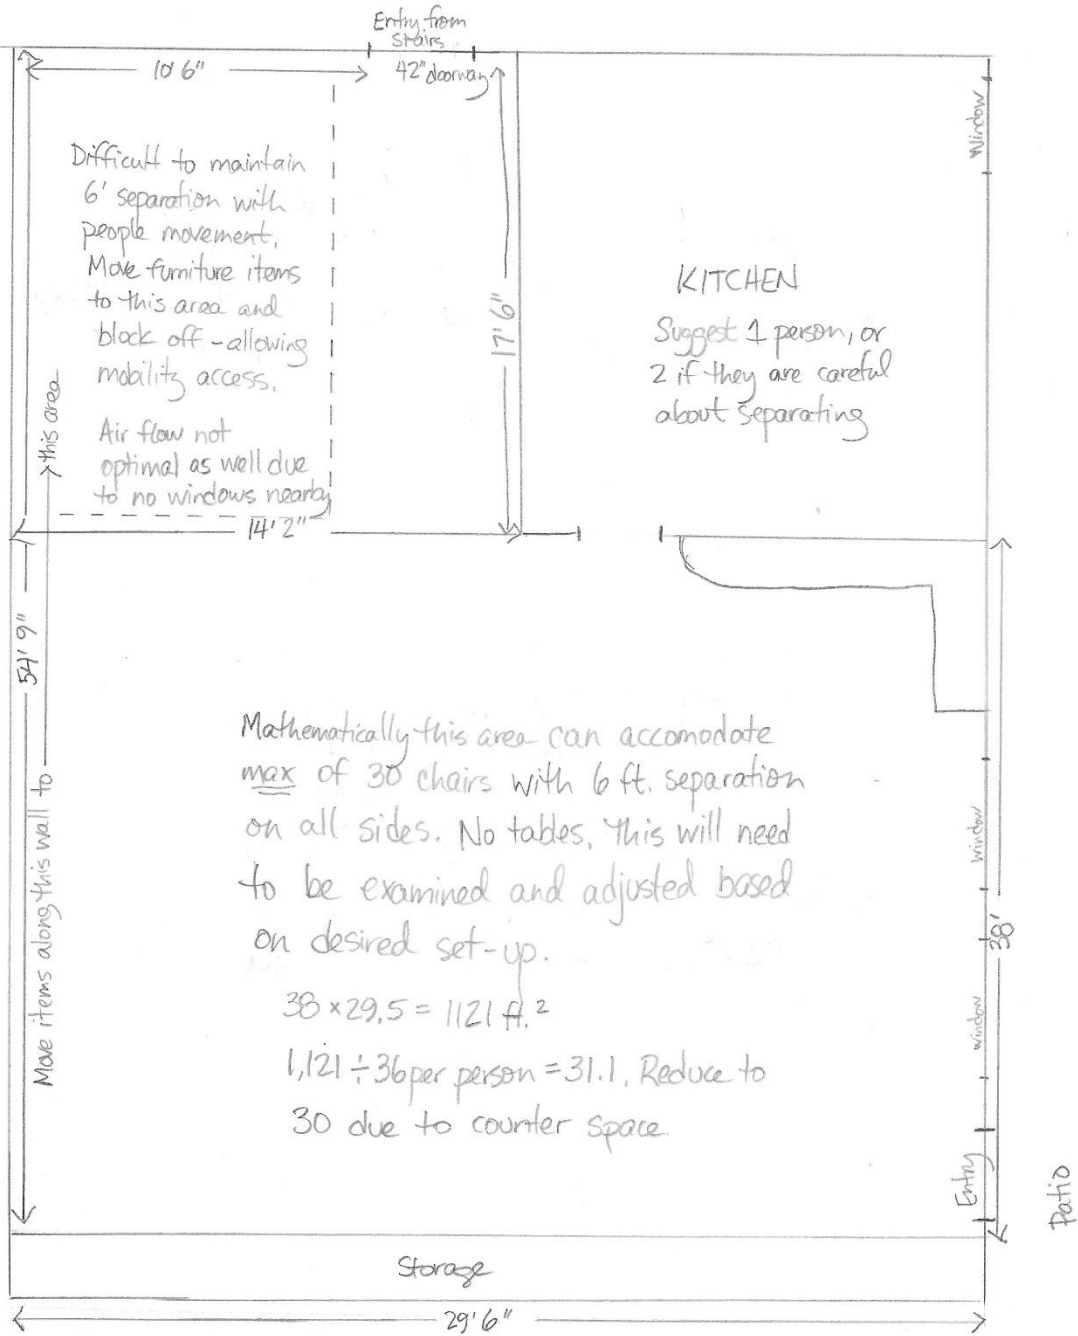 Entry from
stairs
10'6"
42" doorway
Window
Difficult to maintain
6' separation with
people movement.
Move furniture items
to this area and
block off - allowing
mobility access.
Air flow not
optimal as well due
to no windows nearby
17'6"
KITCHEN
Suggest 1 person, or
2 if they are careful
about separating
14'2"
54' 9"
Move items along this wall to this area
Mathematically this area can accomodate
max of 30 chairs with 6 ft. separation
on all sides. No tables. This will need
to be examined and adjusted based
on desired set-up.
38 × 29.5 = 1121 ft.²
1,121 ÷ 36 per person = 31.1. Reduce to
30 due to counter space.
window
38'
window
Entry
Patio
Storage
29'6"